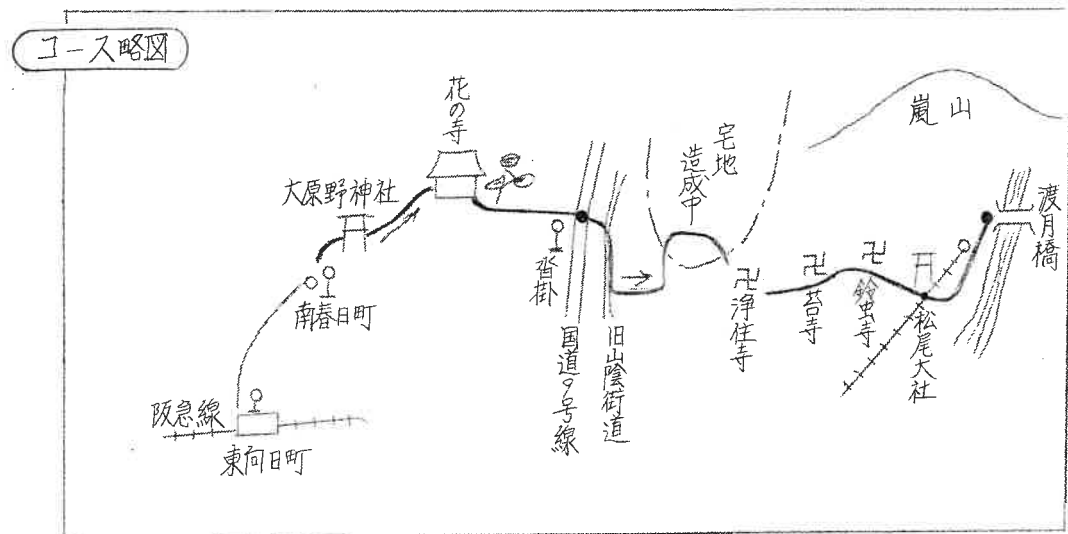 コース略図
花の寺
大原野神社
南春日町
阪急線
東向日町
沓掛
国道9号線
旧山陰街道
宅地
造成中
浄住寺
苔寺
鈴虫寺
松尾大社
嵐山
渡月橋